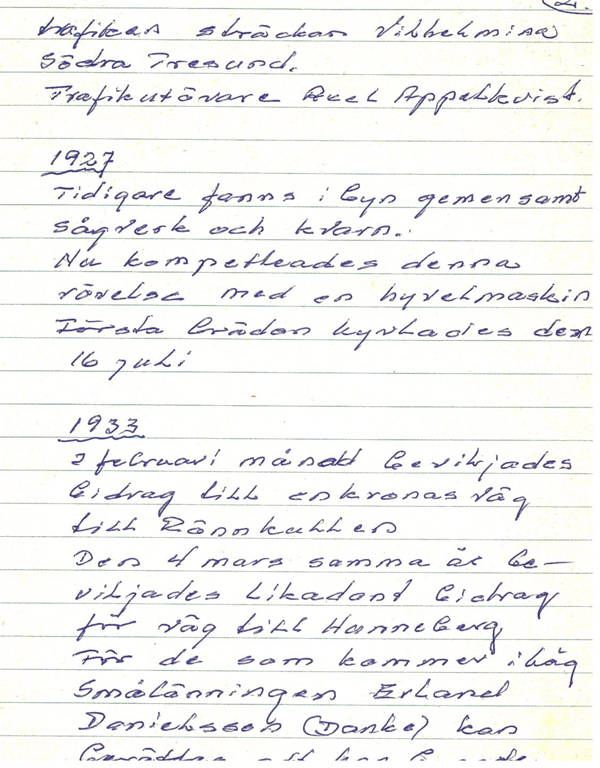 2.
trafiken sträckan Vilhelmina
Södra Tresund.
Trafikutövare Axel Appelkvist.
1927
Tidigare fanns i byn gemensamt
sågverk och kvarn.
Nu kompetleades denna
rörelse med en hyvelmaskin
Första brädan hyvlades den
16 juli
1933
I februari månad beviljades
bidrag till enkronas väg
till Rönnkullen
Den 4 mars samma år be-
viljades likadant bidrag
för väg till Hanneberg
För de som kommer ihåg
Smålänningen Erland
Danielsson (Danke) kan
berättas att han